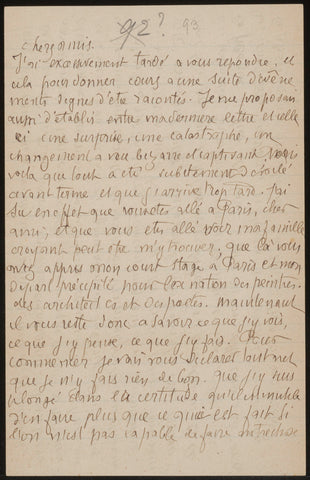 92? 93
chers amis.
J'ai excessivement tardé a vous repondre, et
cela pour donner cours a une suite d'évène
ments dignes d'être racontés. Je me proposais
aussi d'établir entre ma derniere lettre et celle
ci une surprise, une catastrophe, un
changement a vue bizarre et captivant, mais
voila que tout a été subitement devoilé
avant terme et que j'arrive trop tard. J'ai
su en effet que vous etes allé a Paris, cher
ami, et que vous etes allé voir ma famille
croyant peut etre m'y trouver, que la vous
avez appris mon court stage a Paris et mon
départ précipité pour la nation des peintres,
des architectes et des poetes. Maintenant
il vous reste donc a savoir ce que j'y vois,
ce que j'y pense, ce que j'y fais. Pour
commencer je vais vous declarer tout net
que je n'y fais rien de bon. que j'y suis
plongé dans la certitude qu'il est inutile
d'en faire plus que ce qui est fait si
l'on n'est pas capable de faire autre chose